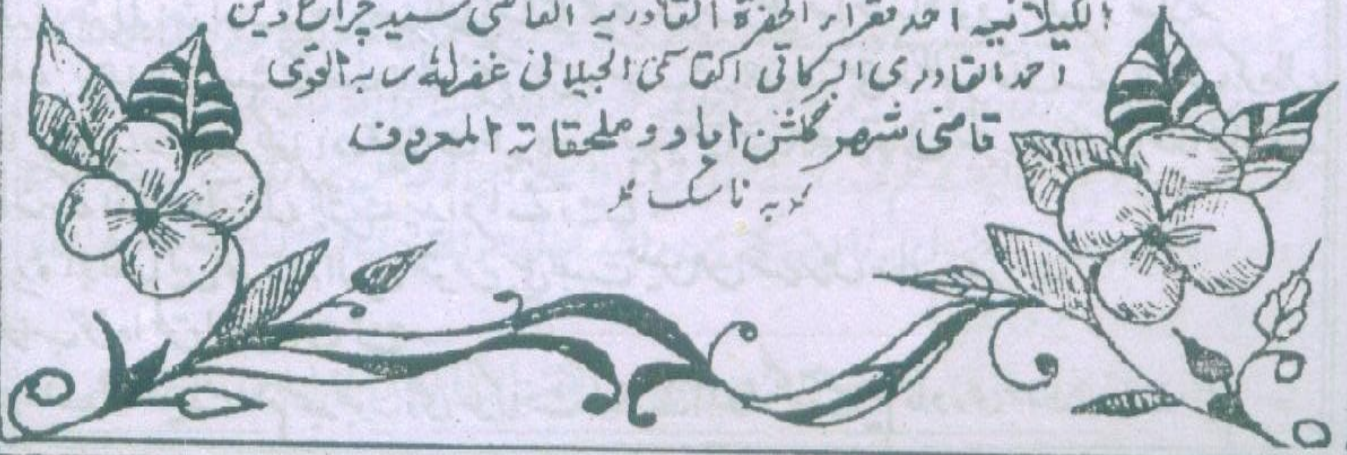 الکیلانیه احد فقراء الحضرة القادریه القاضی سید چراغ دین
احمد القادری البرکاتی القاسمی الجیلانی غفرلهٔ ربه القوی
قاضی شهر گلشن اباد و ملحقاته المعروف
به ناسک